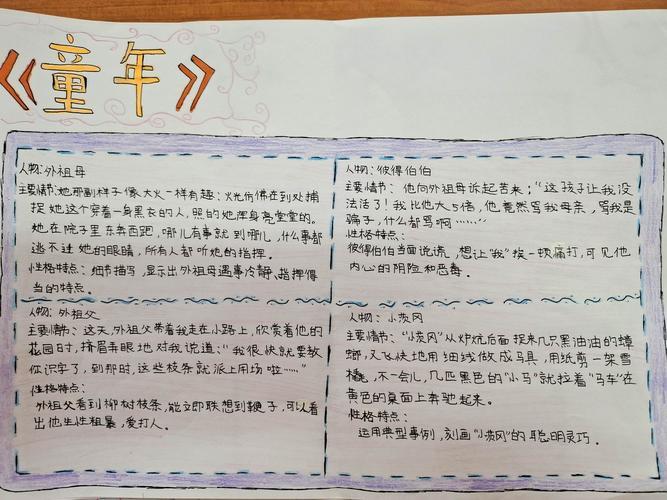 《童年》
人物:外祖母
主要情节:她那副样子像大火一样有趣:火光仿佛在到处捕
捉她这个穿着一身黑衣的人,照的她浑身亮堂堂的。
她在院子里东奔西跑,哪儿有事就到哪儿,什么事都
逃不过她的眼睛,所有人都听她的指挥。
性格特点:细节描写,显示出外祖母遇事冷静、指挥得
当的特点。
人物:彼得伯伯
主要情节:他向外祖母诉起苦来:“这孩子让我没
法活了!我比他大5倍,他竟然骂我母亲,骂我是
骗子,什么都骂啊……”
性格特点:
彼得伯伯当面说谎,想让“我”挨一顿痛打,可见他
内心的阴险和恶毒。
人物:外祖父
主要情节:这天,外祖父带着我走在小路上,欣赏着他的
花园时,挤眉弄眼地对我说道:“我很快就要教
你识字了,到那时,这些枝条就派上用场啦……”
性格特点:
外祖父看到柳树枝条,能立即联想到鞭子,可以看
出他生性粗暴,爱打人。
人物:小茨冈
主要情节:“小茨冈”从炉炕后面捉来几只黑油油的蟑
螂,又飞快地用细线做成马具,用纸剪一架雪
橇,不一会儿,几匹黑色的“小马”就拉着“马车”在
黄色的桌面上奔驰起来。
性格特点:
运用典型事例,刻画“小茨冈”的聪明灵巧。